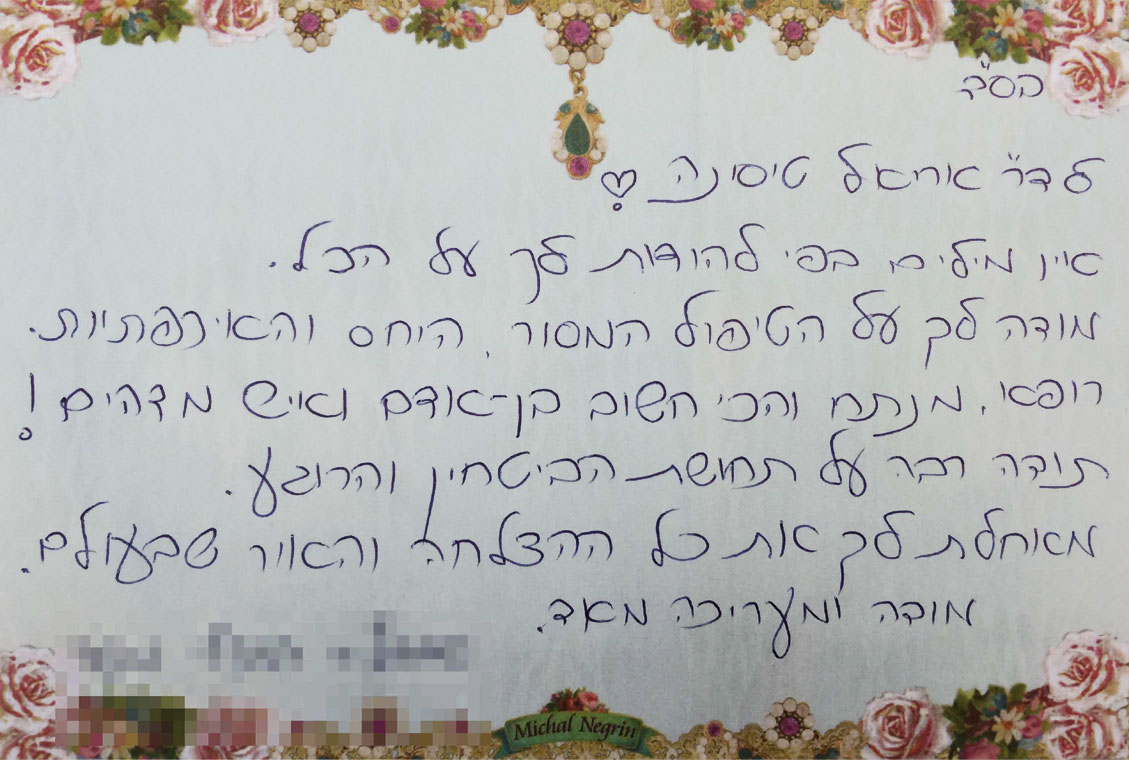 בס"ד
לד"ר אוריאל טיסינה
אין מילים בפי להודות לך על הכל.
מודה לך על הטיפול המסור, היחס והאיכפתיות.
רופא, מנתח והכי חשוב בן-אדם ואיש מדהים!
תודה רבה על תחושת הביטחון והרוגע.
מאוחלת לך את כל ההצלחה והאור שבעולם.
מודה ומעריכה מאד.
Michal Negrin